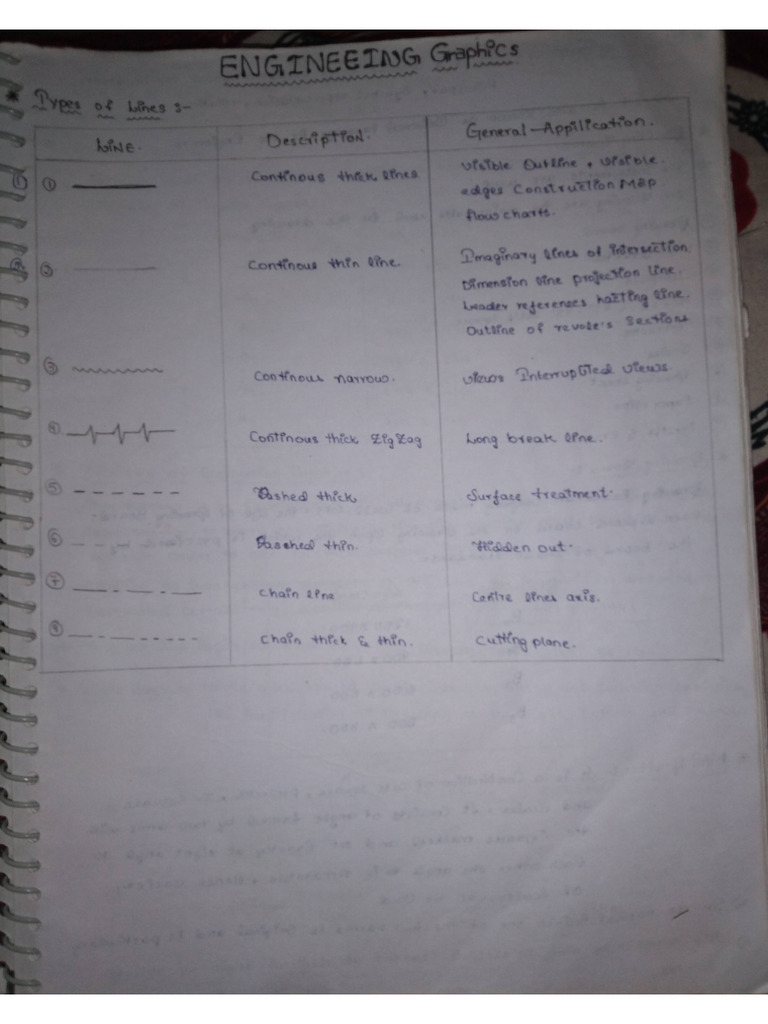 ENGINEEING Graphics
* Types of Lines :-
LINE. Description. General-Appilication.
① ① Continous thick lines Visible Outline, Visible
edges Construction Map
flowcharts.
② Continous thin line. Imaginary lines of intersection
Dimension line projection line.
Leader references hatting line.
Outline of revole's Sections
③ Continous narrow. Views Interrupted views.
④ Continous thick ZigZag Long break line.
⑤ Dashed thick Surface treatment.
⑥ Dasched thin. Hidden out.
⑦ Chain line Centre lines axis.
⑧ Chain thick & thin. Cutting plane.